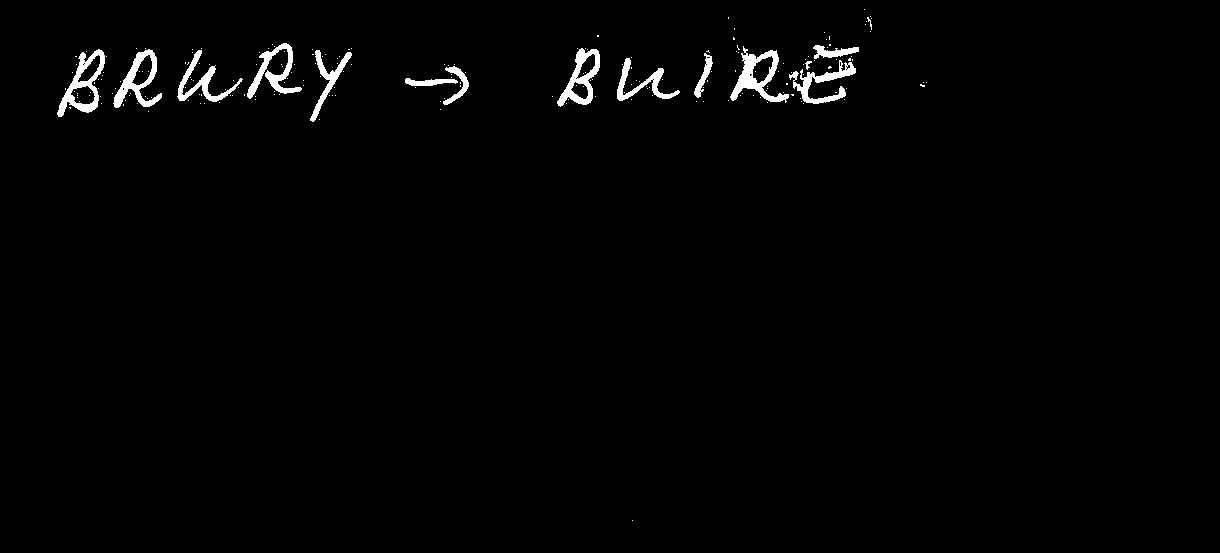 BRURY → BUIRE